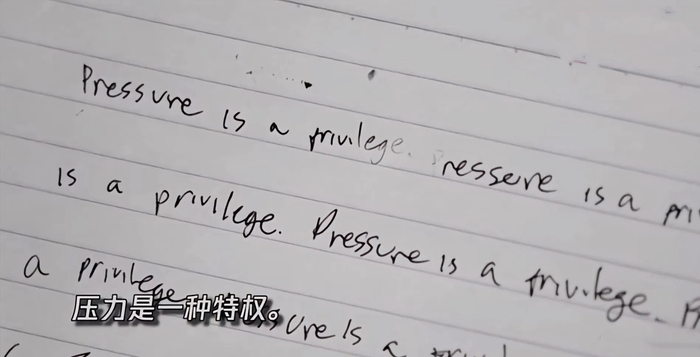 Pressure is a privilege. Pressure is a
is a privilege. Pressure is a privilege.
a privilege is a
压力是一种特权。